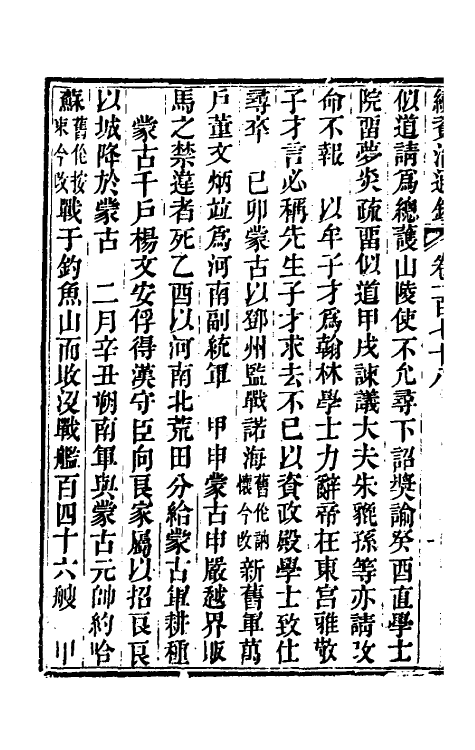 續資治通鑑 卷一百七十八
似道請為總護山陵使不允尋下詔奬諭癸酉直學士
院畱夢炎疏畱似道甲戌諫議大夫朱貔孫等亦請改
命不報　以牟子才為翰林學士力辭帝在東宮雅敬
子才言必稱先生子才求去不已以資政殿學士致仕
尋卒　己卯蒙古以鄧州監戰諾海舊作訥懷今改新舊軍萬
戶董文炳竝為河南副統軍　甲申蒙古申嚴越界販
馬之禁違者死乙酉以河南北荒田分給蒙古軍耕種
　蒙古千戶楊文安俘得漢守臣向良家屬以招良良
以城降於蒙古　二月辛丑朔南軍與蒙古元帥約哈
蘇舊作按東今改戰于釣魚山而敗沒戰艦百四十六艘　甲